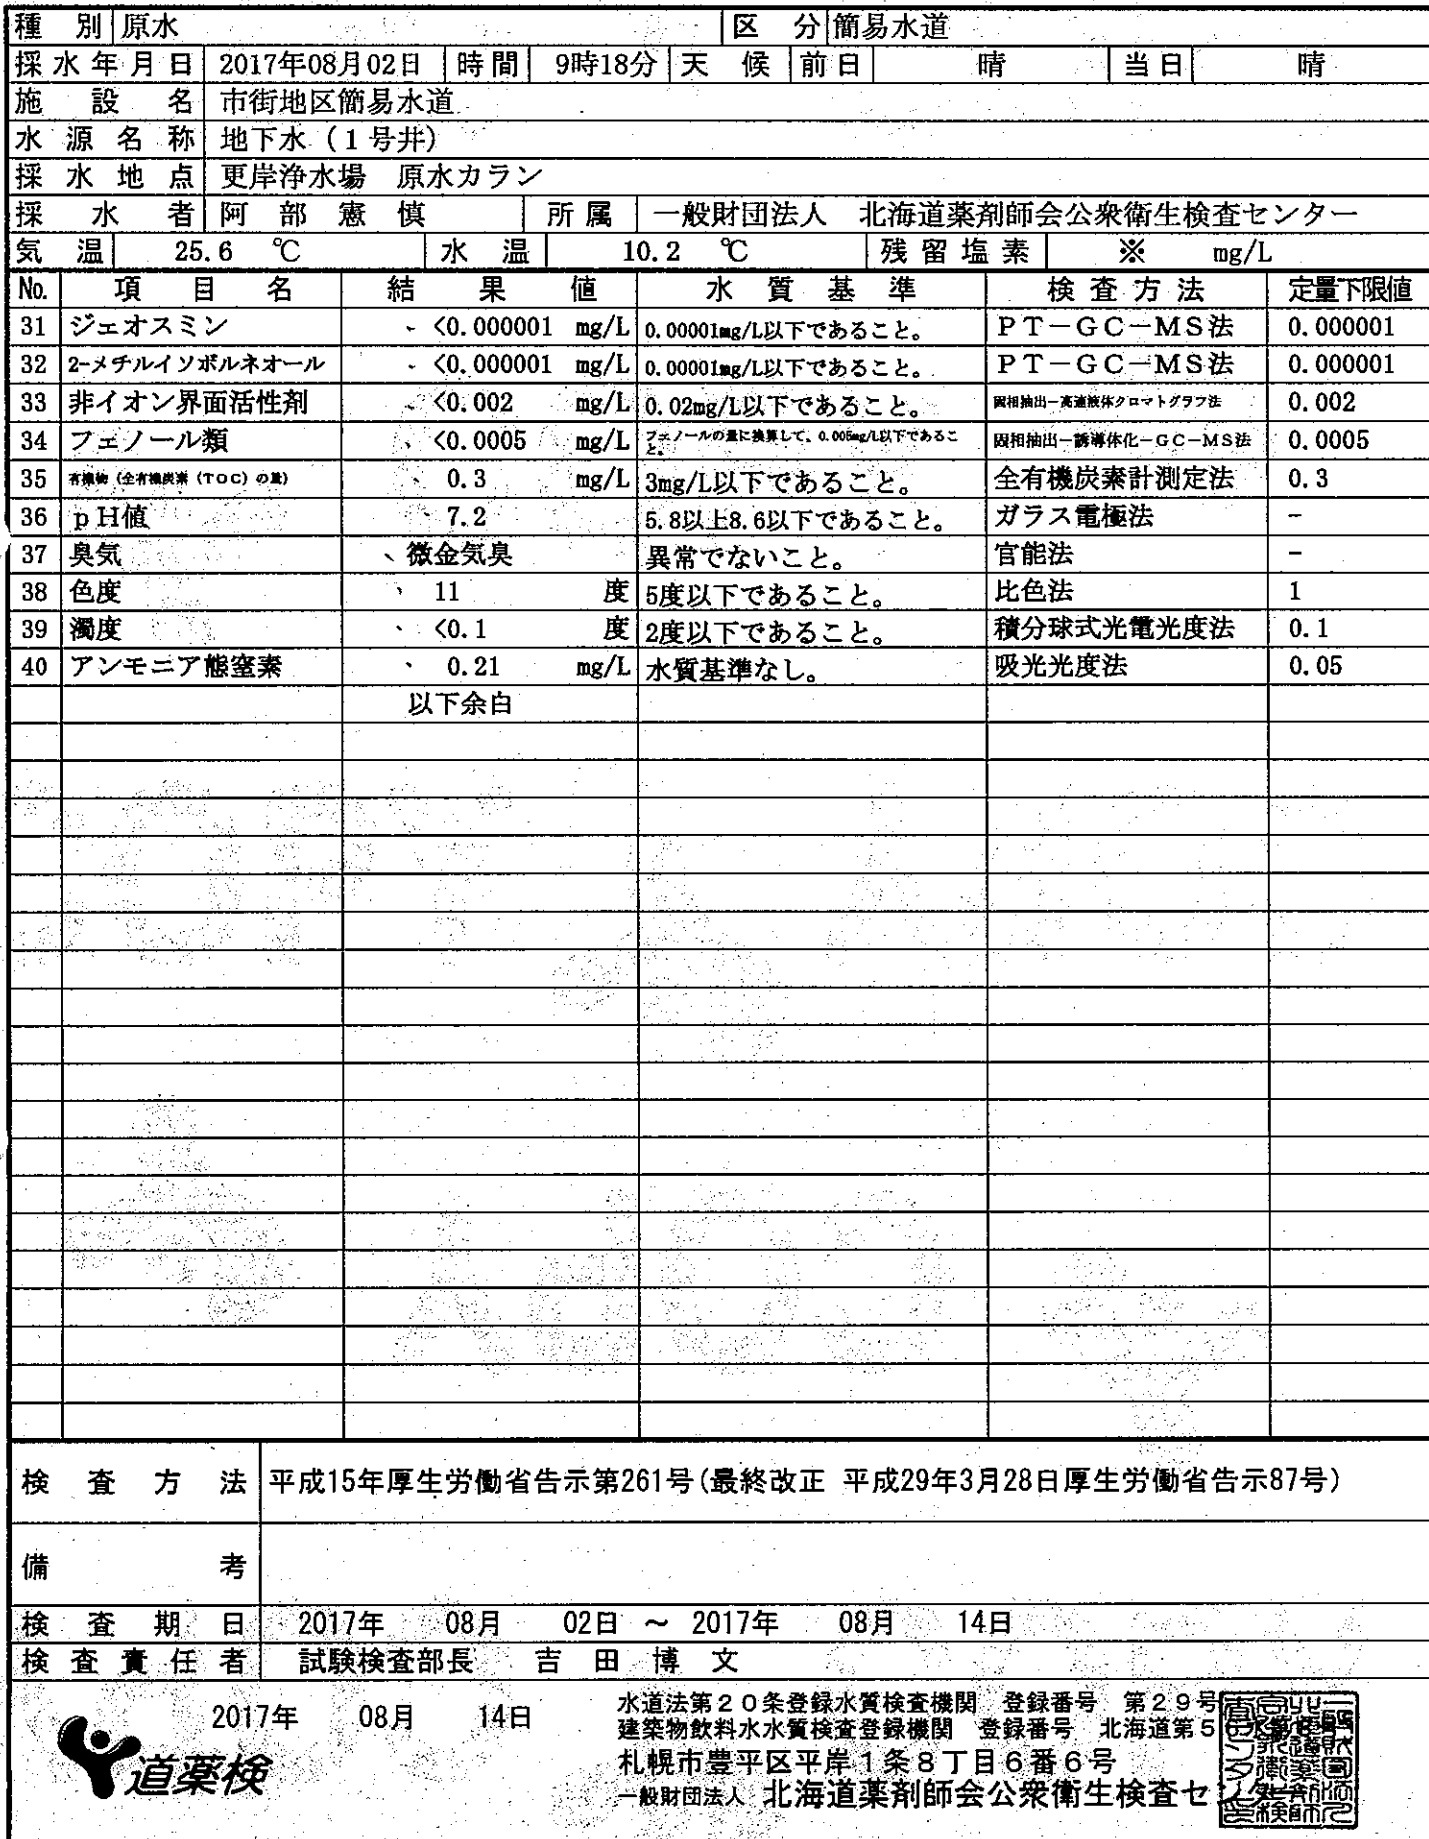 種 別 原水 区 分 簡易水道
採水年月日 2017年08月02日 時間 9時18分 天 候 前日 晴 当日 晴
施 設 名 市街地区簡易水道
水 源 名 称 地下水(1号井)
採 水 地 点 更岸浄水場 原水カラン
採 水 者 阿 部 憲 慎 所属 一般財団法人 北海道薬剤師会公衆衛生検査センター
気 温 25.6 ℃ 水 温 10.2 ℃ 残留塩素 ※ mg/L
No. 項 目 名 結 果 値 水 質 基 準 検査方法 定量下限値
31 ジェオスミン <0.000001 mg/L 0.00001mg/L以下であること。 PT-GC-MS法 0.000001
32 2-メチルイソボルネオール <0.000001 mg/L 0.00001mg/L以下であること。 PT-GC-MS法 0.000001
33 非イオン界面活性剤 <0.002 mg/L 0.02mg/L以下であること。 固相抽出-高速液体クロマトグラフ法 0.002
34 フェノール類 <0.0005 mg/L フェノールの量に換算して、0.005mg/L以下であること。 固相抽出-誘導体化-GC-MS法 0.0005
35 有機物(全有機炭素(TOC)の量) 0.3 mg/L 3mg/L以下であること。 全有機炭素計測定法 0.3
36 pH値 7.2 5.8以上8.6以下であること。 ガラス電極法 -
37 臭気 微金気臭 異常でないこと。 官能法 -
38 色度 11 度 5度以下であること。 比色法 1
39 濁度 <0.1 度 2度以下であること。 積分球式光電光度法 0.1
40 アンモニア態窒素 0.21 mg/L 水質基準なし。 吸光光度法 0.05
以下余白
検 査 方 法 平成15年厚生労働省告示第261号(最終改正 平成29年3月28日厚生労働省告示87号)
備 考
検 査 期 日 2017年 08月 02日 ~ 2017年 08月 14日
検 査 責 任 者 試験検査部長 吉 田 博 文
2017年 08月 14日
道薬検
水道法第20条登録水質検査機関 登録番号 第29号
建築物飲料水水質検査登録機関 登録番号 北海道第5
札幌市豊平区平岸1条8丁目6番6号
一般財団法人 北海道薬剤師会公衆衛生検査セン